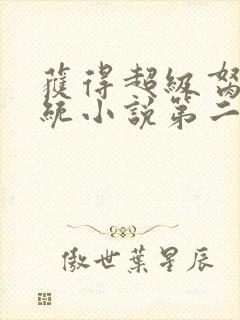 獲得超級
統小說第二
傲世葉星辰